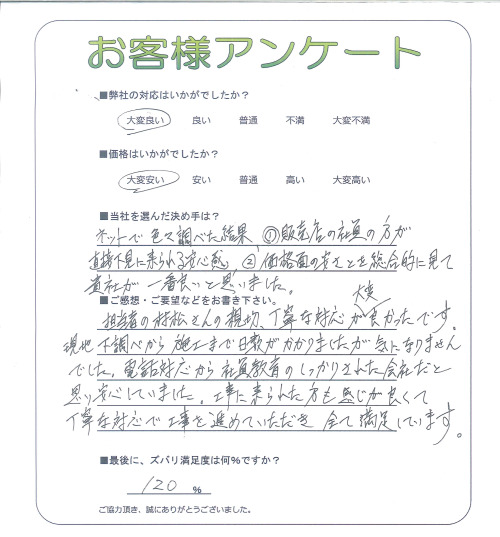 お客様アンケート
■弊社の対応はいかがでしたか？
大変良い 良い 普通 不満 大変不満
■価格はいかがでしたか？
大変安い 安い 普通 高い 大変高い
■当社を選んだ決め手は？
ネットで色々調べた結果 ①販売店の社員の方が
直接下見に来られる安心感 ②価格面の安さとを総合的に見て
貴社が一番良いと思いました。
■ご感想・ご要望などをお書き下さい。
大変
担当者の村松さんの親切、丁寧な対応が良かったです。
現地下調べから施工まで日数がかかりましたが気になりません
でした。電話対応から社員教育のしっかりされた会社だと
思い安心していました。工事に来られた方も感じが良くて
丁寧な対応で工事を進めていただき全て満足しています。
■最後に、ズバリ満足度は何%ですか？
120 %
ご協力頂き、誠にありがとうございました。